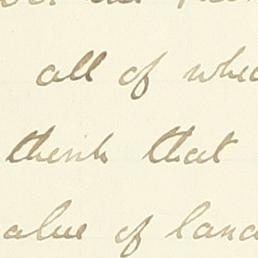 all of whic
think that
alue of land